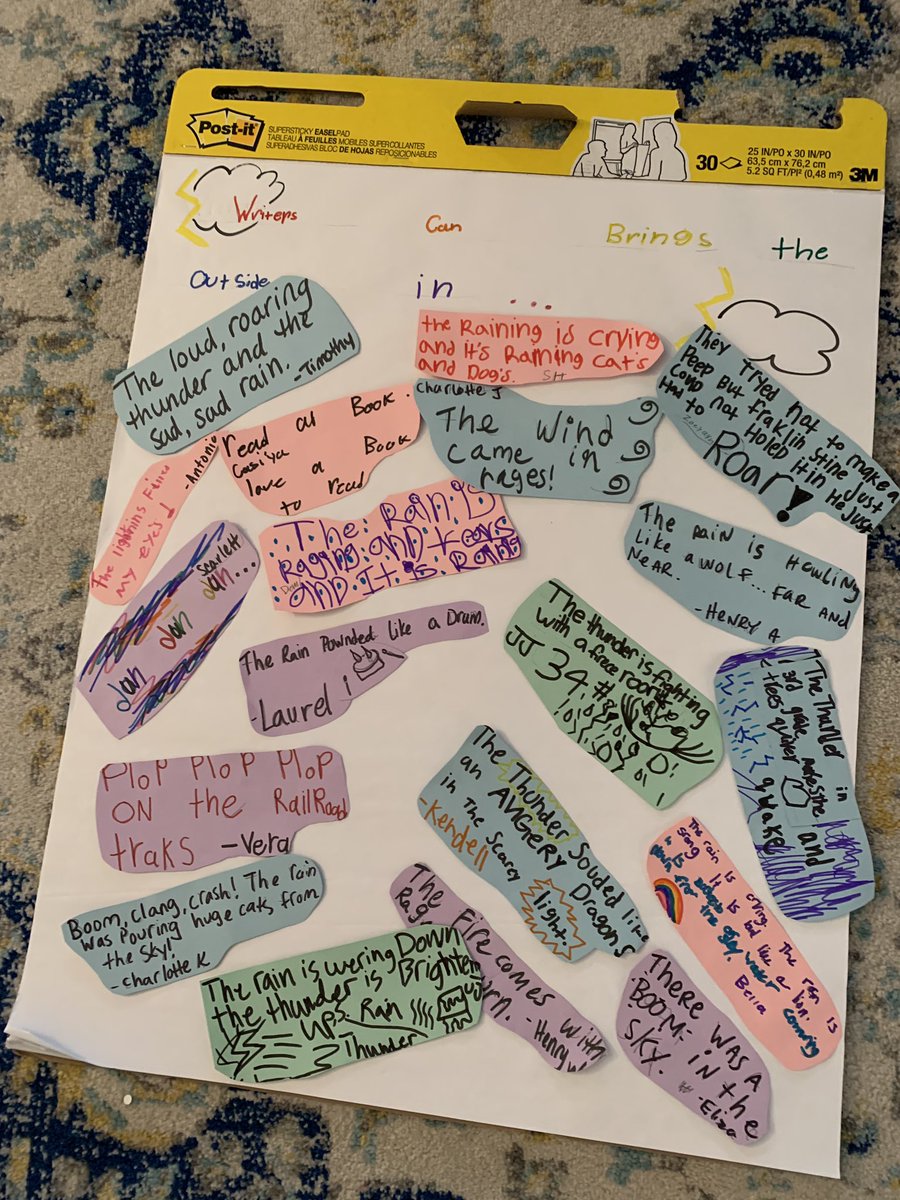 Post-it
SUPERSTICKY EASEL PAD
TABLEAU À FEUILLES MOBILES SUPER COLLANTES
SUPERADHESIVAS BLOC DE HOJAS REPOSICIONABLES
30
25 IN/PO x 30 IN/PO
63,5 cm x 76,2 cm
5.2 SQ FT/PI² (0,48 m²)
3M
Writers Can Brings the
Outside in ...
The loud, roaring
thunder and the
sad, sad rain.
-Timothy
the Raining is crying
and it's Raining cat's
and Dog's. SH
They Tryed not to make a
Peep But fraklin shine Just
Coud not Holed it in He Just
Had to
ROar!
read a Book.
love a Book
to read
Charlotte J
The Wind
came in
rages!
The lightning
my eye's!
-Antonio
The Rain is
Raging and tears
and It is Raining
The RaiN is Howling
Like a WOLF... FAR AND
NEAR.
-HENRY A
Scarlett
dan dan dan...
The Rain Pownded Like a Drum.
-Laurel i
The thunder is fighting
with a free
JJ 34.#
The Thunder in
3rd grade makes the
trees quiver and
quake
PLOP PLOP PLOP
ON the RailRoad
traks -Vera
The Thunder Souded like
an AVGERY Dragons
in the Scarey light!
-Kendell
The rain is crying. The rain is
strong It is Loud like a lion.
Bella
Boom, clang, crash! The rain
was pouring huge cats from
the sky!
-charlotte K
The Fire comes with
-Henry
The rain is wering DOWN
the thunder is Brighten
UPS. Rain
Thunder
THERE WAS A
BOOM- IN the
SKY.
-Eliza